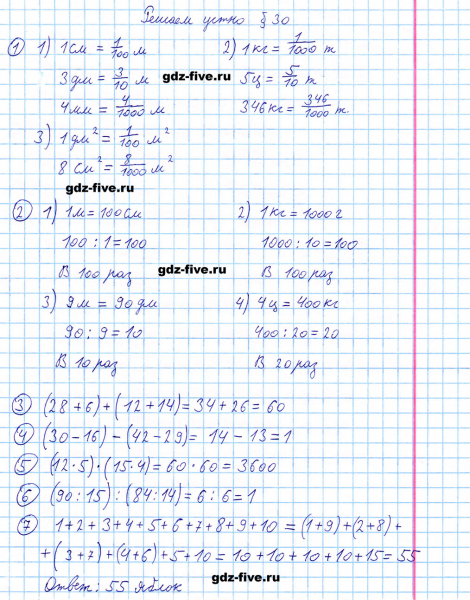 Решаем устно § 30
① 1) 1 см = 1/100 м 2) 1 кг = 1/1000 т
3 дм = 3/10 м 5 ц = 5/10 т
gdz-five.ru
4 мм = 4/1000 м 346 кг = 346/1000 т
3) 1 дм² = 1/100 м²
8 см² = 8/1000 м²
gdz-five.ru
② 1) 1 м = 100 см 2) 1 кг = 1000 г
100 : 1 = 100 1000 : 10 = 100
В 100 раз gdz-five.ru В 100 раз
3) 9 м = 90 дм 4) 4 ц = 400 кг
90 : 9 = 10 400 : 20 = 20
В 10 раз В 20 раз
③ (28 + 6) + (12 + 14) = 34 + 26 = 60
④ (30 - 16) - (42 - 29) = 14 - 13 = 1
⑤ (12 · 5) · (15 · 4) = 60 · 60 = 3600
⑥ (90 : 15) : (84 : 14) = 6 : 6 = 1
⑦ 1 + 2 + 3 + 4 + 5 + 6 + 7 + 8 + 9 + 10 = (1 + 9) + (2 + 8) +
+ (3 + 7) + (4 + 6) + 5 + 10 = 10 + 10 + 10 + 10 + 15 = 55
Ответ: 55 яблок
gdz-five.ru